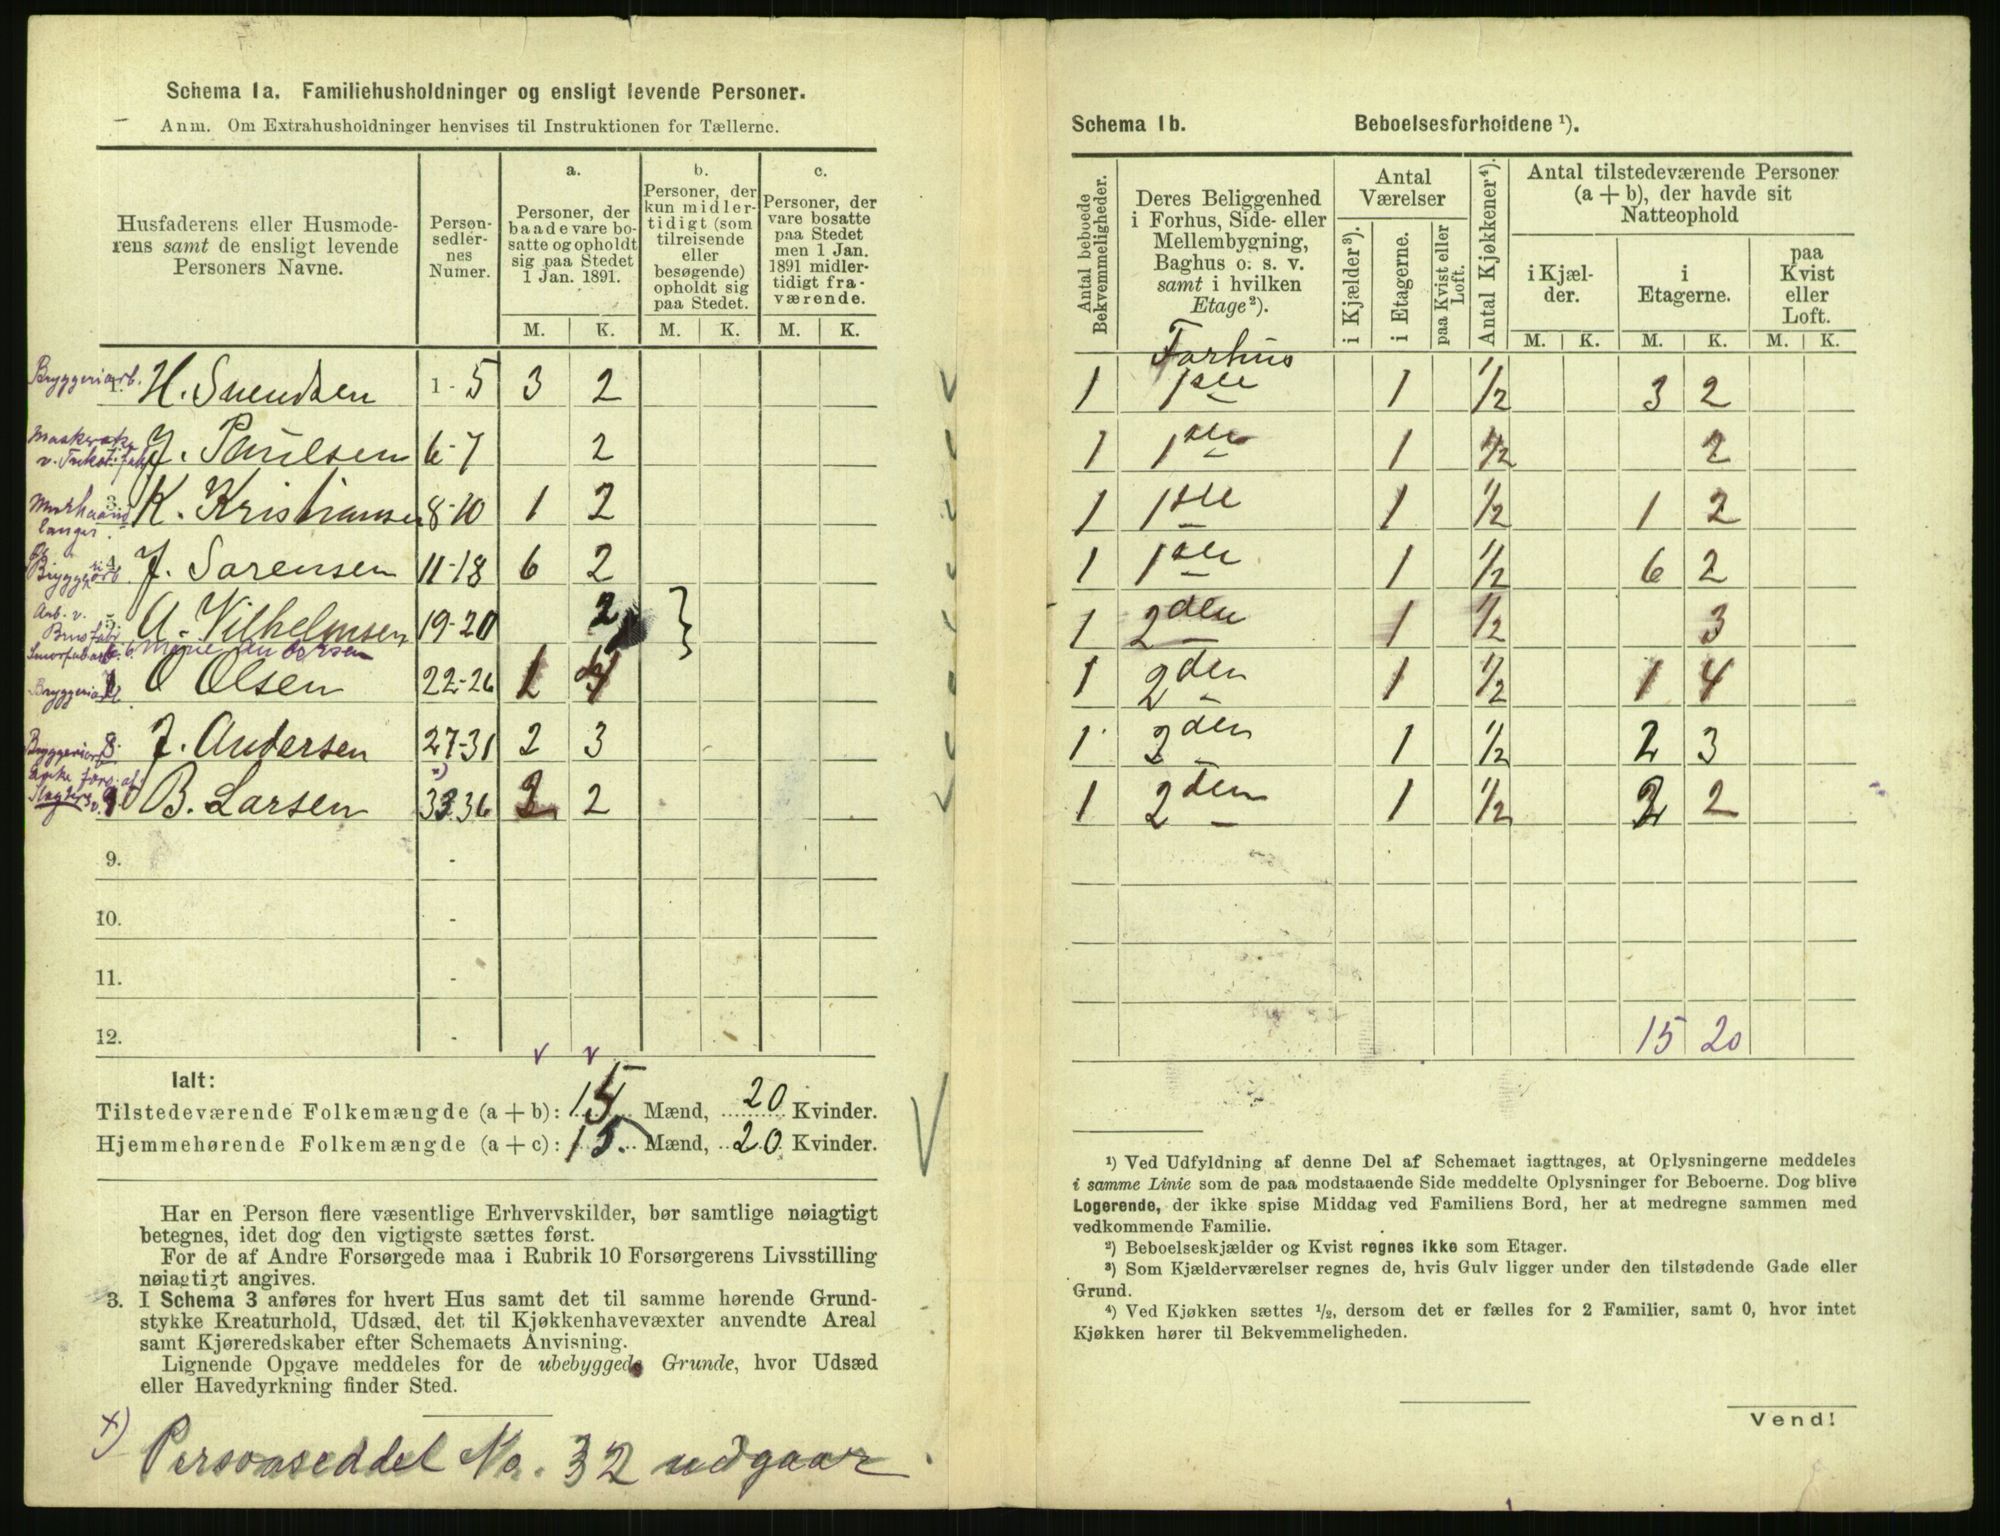 Schema 1a. Familiehusholdninger og ensligt levende Personer.
Anm. Om Extrahusholdninger henvises til Instruktionen for Tællerne.
Husfaderens eller Husmode-
rens samt de ensligt levende
Personers Navne.
Person-
sedler-
nes
Numer.
a.
Personer, der
baade vare bo-
satte og opholdt
sig paa Stedet
1 Jan. 1891.
b.
Personer, der
kun midler-
tidigt (som
tilreisende
eller
besøgende)
opholdt sig
paa Stedet.
c.
Personer, der
vare bosatte
paa Stedet
men 1 Jan.
1891 midler-
tidigt fra-
værende.
M. K. M. K. M. K.
Bryggeriarb. 1. H. Svendsen 1-5 3 2
J. Paulsen 6-7 2
3. K. Kristiansen 8-10 1 2
4. J. Sørensen 11-18 6 2
5. A. Vilhelmsen 19-20 2
6. Marie Andersen
O Olsen 22-26 1 4
8. J. Andersen 27-31 2 3
B. Larsen 33 36 2 2
9. -
10. -
11. -
12. -
Ialt:
Tilstedeværende Folkemængde (a + b): 15 Mænd, 20 Kvinder.
Hjemmehørende Folkemængde (a + c): 15. Mænd, 20 Kvinder.
Har en Person flere væsentlige Erhvervskilder, bør samtlige nøiagtigt
betegnes, idet dog den vigtigste sættes først.
For de af Andre Forsørgede maa i Rubrik 10 Forsørgerens Livsstilling
nøiagtigt angives.
3. I Schema 3 anføres for hvert Hus samt det til samme hørende Grund-
stykke Kreaturhold, Udsæd, det til Kjøkkenhavevæxter anvendte Areal
samt Kjøreredskaber efter Schemaets Anvisning.
Lignende Opgave meddeles for de ubebyggede Grunde, hvor Udsæd
eller Havedyrkning finder Sted.
x) Personseddel No. 32 udgaar.
Schema 1b. Beboelsesforholdene ¹).
Antal beboede
Bekvemmeligheder.
Deres Beliggenhed
i Forhus, Side- eller
Mellembygning,
Baghus o. s. v.
samt i hvilken
Etage²).
Antal
Værelser
i Kjælder³).
i Etagerne.
paa Kvist eller
Loft.
Antal Kjøkkener⁴).
Antal tilstedeværende Personer
(a + b), der havde sit
Natteophold
i Kjæl-
der.
i
Etagerne.
paa
Kvist
eller
Loft.
M. K. M. K. M. K.
Forhus
1 1ste 1 1/2 3 2
1 1ste 1 1/2 2
1 1ste 1 1/2 1 2
1 1ste 1 1/2 6 2
1 2den 1 1/2 3
1 2den 1 1/2 1 4
1 2den 1 1/2 2 3
1 2den 1 1/2 2 2
15 20
¹) Ved Udfyldning af denne Del af Schemaet iagttages, at Oplysningerne meddeles
i samme Linie som de paa modstaaende Side meddelte Oplysninger for Beboerne. Dog blive
Logerende, der ikke spise Middag ved Familiens Bord, her at medregne sammen med
vedkommende Familie.
²) Beboelseskjælder og Kvist regnes ikke som Etager.
³) Som Kjælderværelser regnes de, hvis Gulv ligger under den tilstødende Gade eller
Grund.
⁴) Ved Kjøkken sættes ½, dersom det er fælles for 2 Familier, samt 0, hvor intet
Kjøkken hører til Bekvemmeligheden.
Vend!